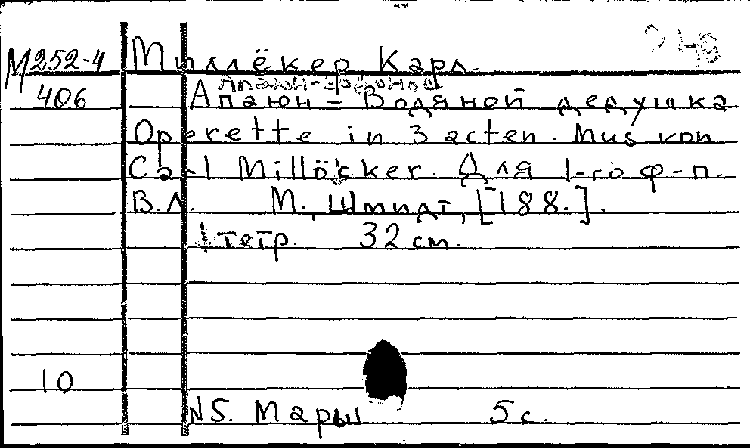 М252-4 Миллёкер Карл. 248
406 Апаюн-Водяной
Апаюн – Водяной дедушка
Operette in 3 acten. Mus von
Carl Millöcker. Для 1-го ф-п.
В.Л. М., Шмидт, [188.].
1 тетр. 32 cm.
10
N5. Марш 5 с.